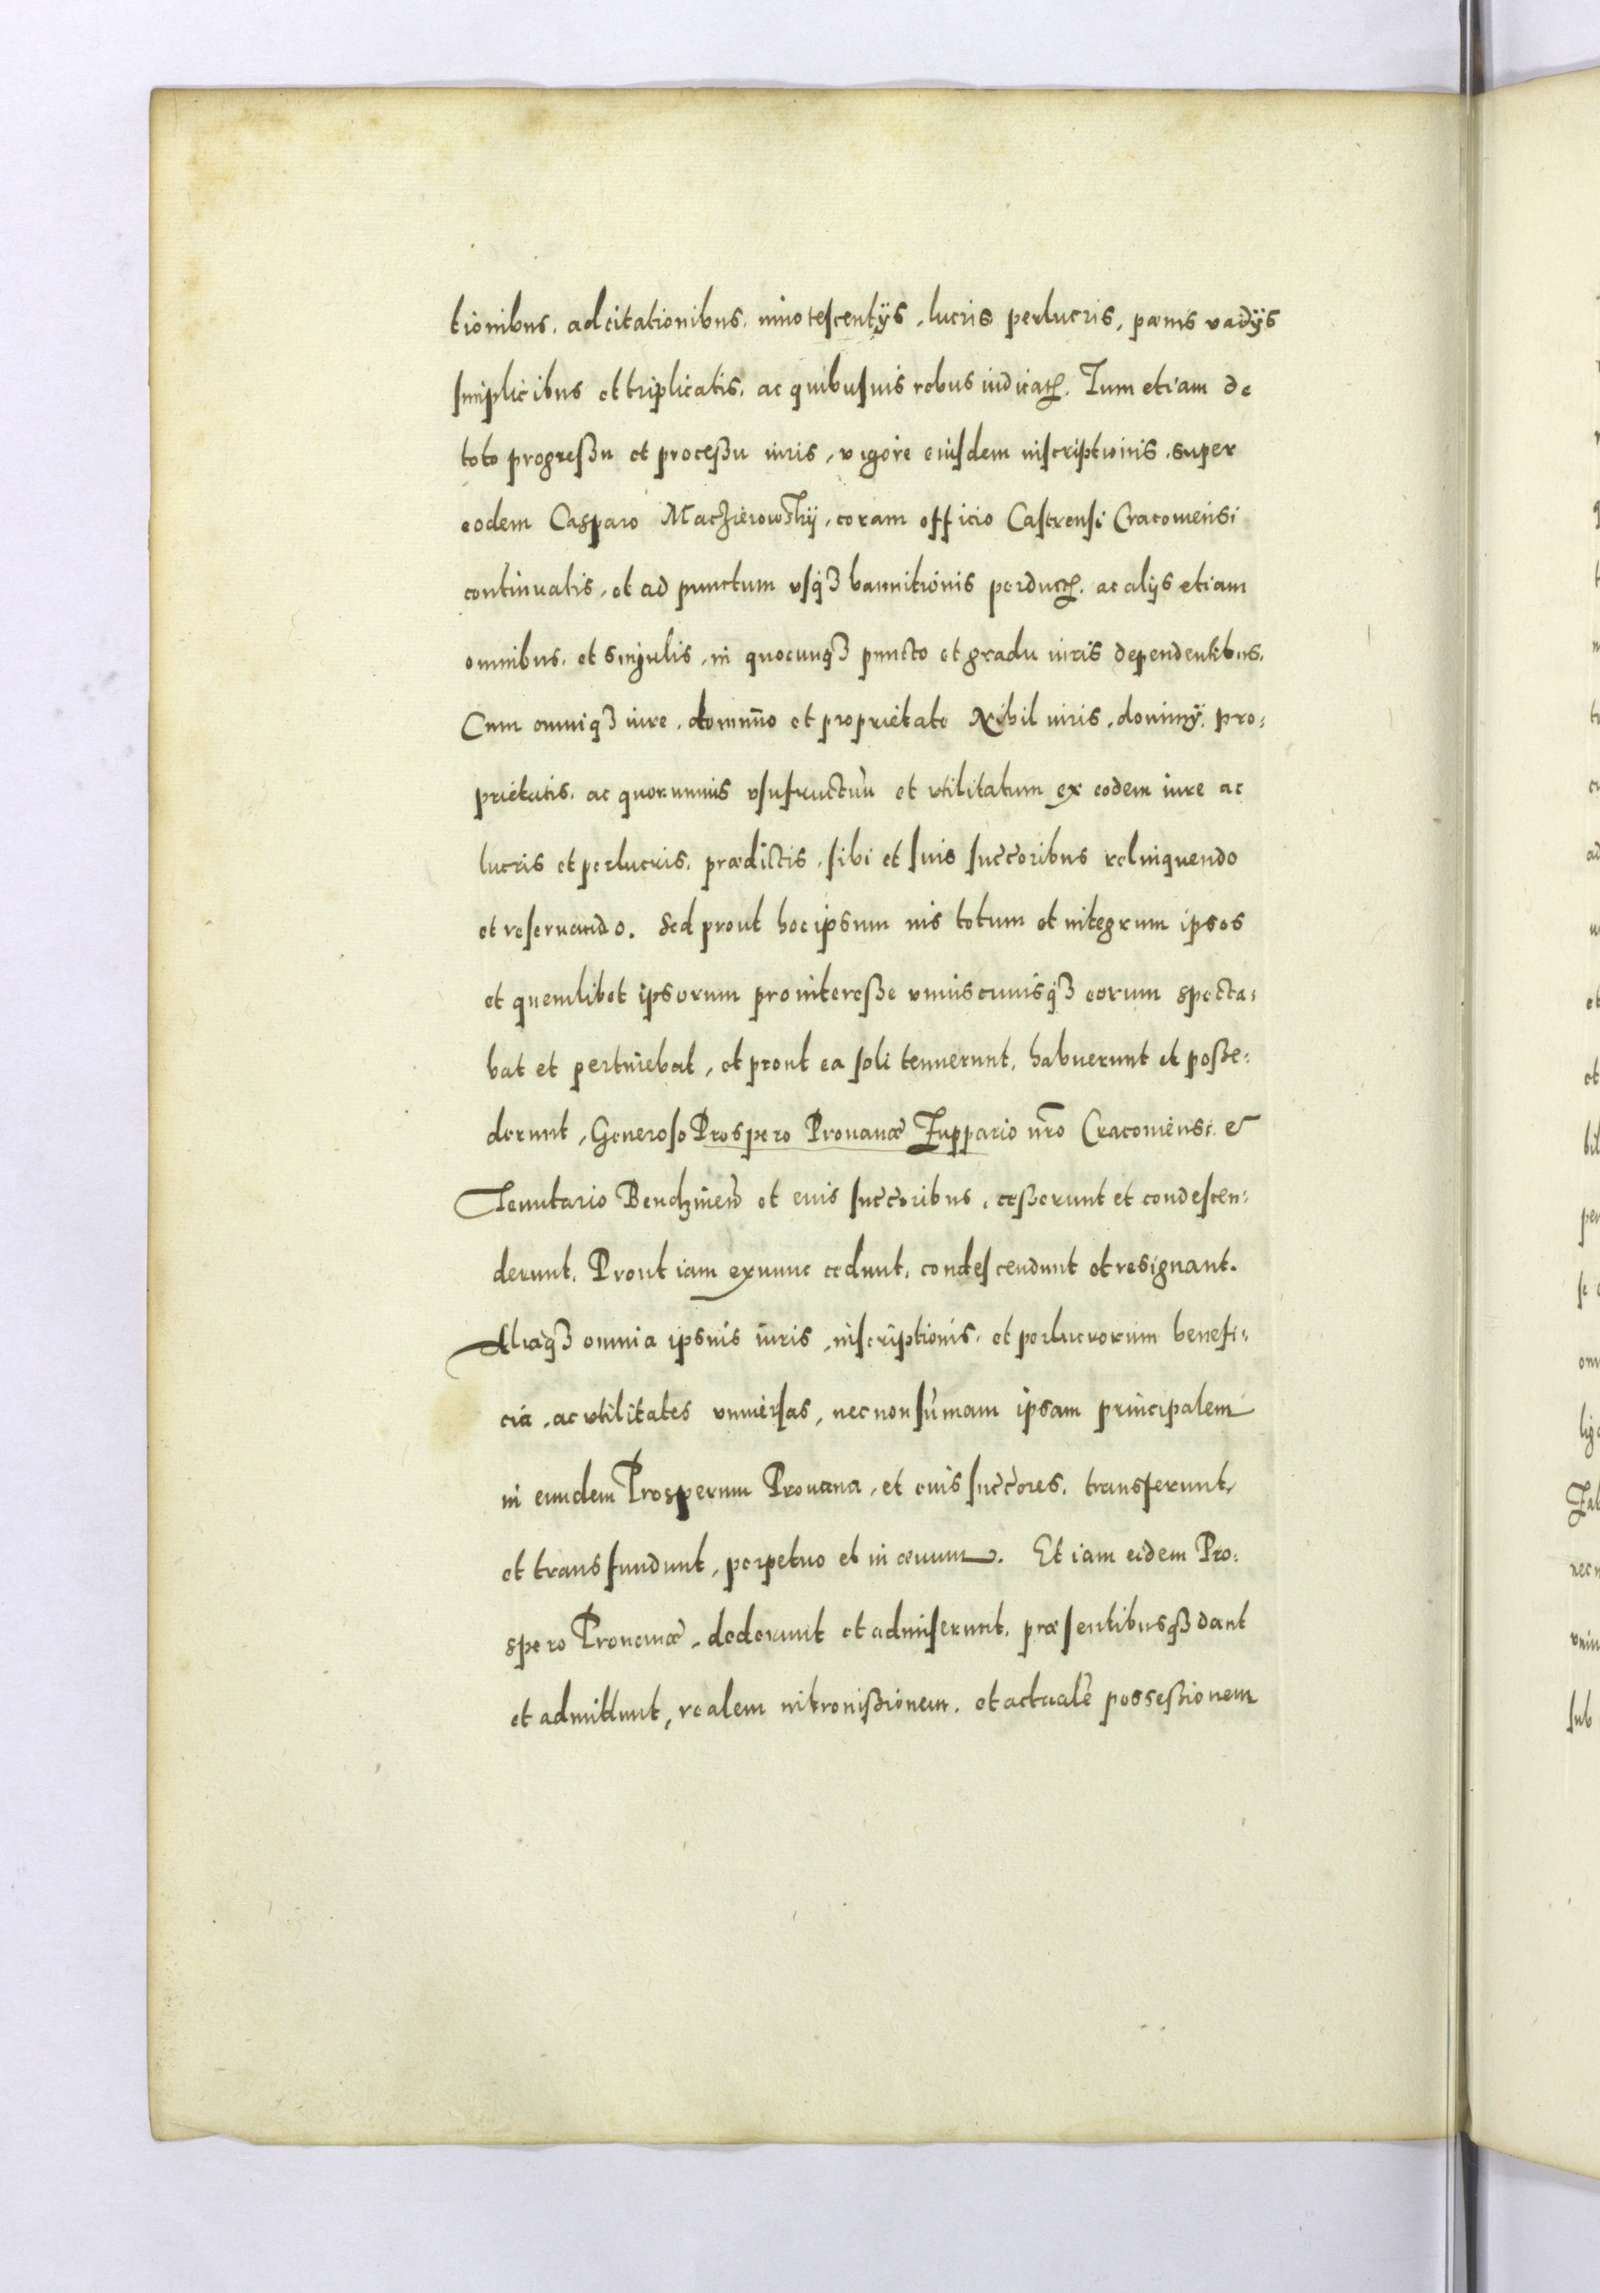 tionibus, adcitationibus, innotescentijs, lucris perlucris, pœnis vadijs
simplicibus et triplicatis, ac quibusuis rebus iudicatꝭ. Tum etiam de
toto progreßu et proceßu iuris, vigore eiusdem inscriptionis, super
eodem Casparo Maczieiowskij, coram officio Castrensi Cracouiensi
continuatis, et ad punctum vsqꝫ bannitionis perductꝭ. ac alijs etiam
omnibus, et singulis, in quocunqꝫ puncto et gradu iuris dependentibus.
Cum omniqꝫ iure, dominio et proprietate Nihil iuris, dominij, pro:
prietatis, ac quorumuis vsufructuū et vtilitatum ex eodem iure ac
lucris et perlucris, prædictis, sibi et suis succ̄oribus relinquendo
et reseruando. Sed prout hoc ipsum ius totum et integrum ipsos
et quemlibet ipsorum pro intereße vniuscuiusqꝫ eorum specta:
bat et pertinebat, et prout ea soli tenuerunt, habuerunt et poße:
derunt, Generoso Prospero Prouanæ Zuppario nr̄o Cracouiensi &
Tenutario Bendzineñ et eius succ̄oribus, ceßerunt et condescen:
derunt, Prout iam exnunc cedunt, condescendunt et resignant.
Aliaqꝫ omnia ipsius iuris, inscriptionis, et perlucrorum benefi:
cia, ac vtilitates vniuersas, nec non sūmam ipsam principalem
in eundem Prosperum Prouana, et eius succ̄ores, transferunt,
et transfundunt, perpetuo et in æuum. Et iam eidem Pro:
spero Prouanæ, dederunt et admiserunt, præsentibusqꝫ dant
et admittunt, realem intromißionem, et actualē posseßionem